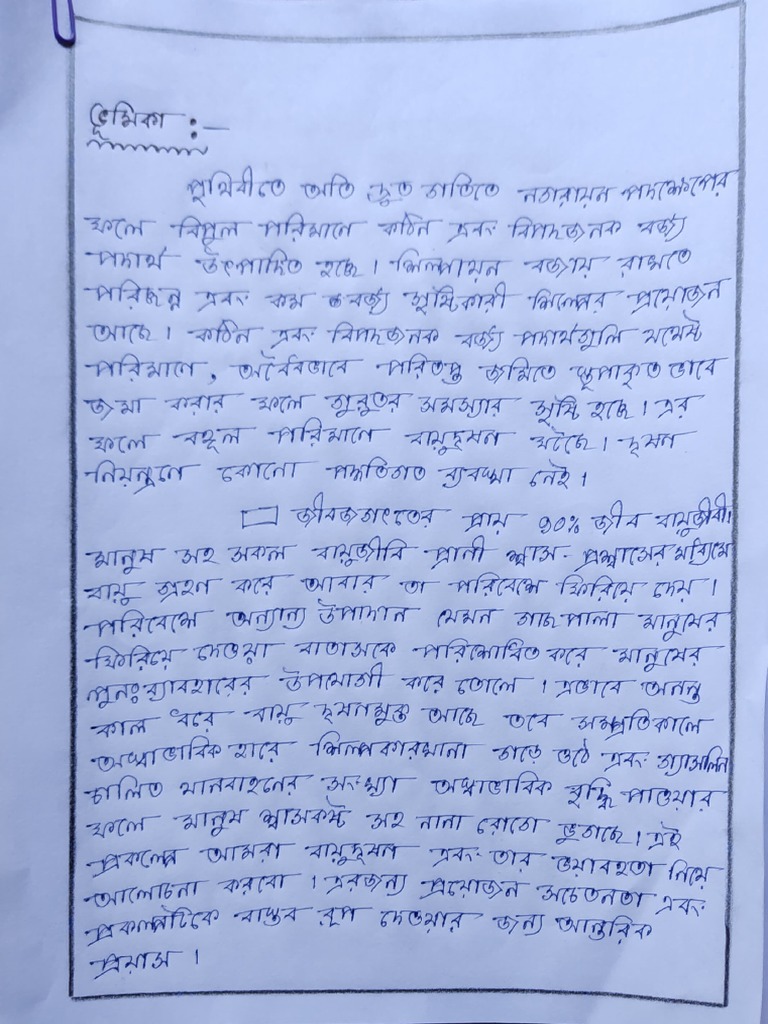 ভূমিকা :-
পৃথিবীতে অতি দ্রুত গতিতে নগরায়ন পদক্ষেপের
ফলে বিপুল পরিমানে কঠিন এবং বিপদজনক বর্জ্য
পদার্থ উৎপাদিত হচ্ছে। শিল্পায়ন বজায় রাখতে
পরিচ্ছন্ন এবং কম বর্জ্য সৃষ্টিকারী শিল্পের প্রয়োজন
আছে। কঠিন এবং বিপদজনক বর্জ্য পদার্থগুলি যথেষ্ট
পরিমানে, অবৈধভাবে পরিত্যক্ত জমিতে স্তূপাকৃত ভাবে
জমা করার ফলে গুরুতর সমস্যার সৃষ্টি হচ্ছে। এর
ফলে বহুল পরিমানে বায়ুদূষন ঘটছে। দূষন
নিয়ন্ত্রনে কোনো পদ্ধতিগত ব্যবস্থা নেই।
জীবজগৎতের প্রায় 90% জীব বায়ুজীবী।
মানুষ সহ সকল বায়ুজীবি প্রানী শ্বাস-প্রশ্বাসের মাধ্যমে
বায়ু গ্রহণ করে আবার তা পরিবেশে ফিরিয়ে দেয়।
পরিবেশে অন্যান্য উপাদান যেমন গাছপালা মানুষের
ফিরিয়ে দেওয়া বাতাসকে পরিশোধিত করে মানুষের
পুনঃব্যাবহারের উপযোগী করে তোলে। এভাবে অনন্ত
কাল ধরে বায়ু দূষনমুক্ত আছে তবে সম্প্রতিকালে
অস্বাভাবিক হারে শিল্পকারখানা গড়ে ওঠে এবং গ্যাসলিন
চালিত যানবাহনের সংখ্যা অস্বাভাবিক বৃদ্ধি পাওয়ার
ফলে মানুষ শ্বাসকষ্ট সহ নানা রোগে ভুগছে। এই
প্রকল্পে আমরা বায়ুদূষন এবং তার ভয়াবহতা নিয়ে
আলোচনা করবো। এরজন্য প্রয়োজন সচেতনতা এবং
প্রকল্পটিকে বাস্তব রূপ দেওয়ার জন্য আন্তরিক
প্রয়াস।